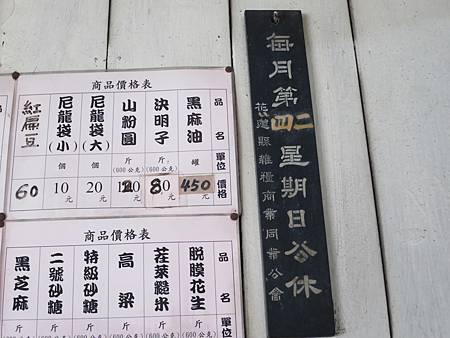 商品價格表
品名 單位 價格
黑麻油 罐 450元
決明子 斤 (600公克) 80元
山粉圓 斤 (600公克) 元
尼龍袋(大) 個 20元
尼龍袋(小) 個 10元
紅扁豆 60
商品價格表
品名 單位
脫膜花生 斤 (600公克)
茬萊糙米 斤 (600公克)
高梁 斤 (600公克)
特級砂糖 斤 (600公克)
二號砂糖 斤 (600公克)
黑芝麻 斤 (600公克)
每月第四二星期日公休
花蓮縣雜糧商業同業公會